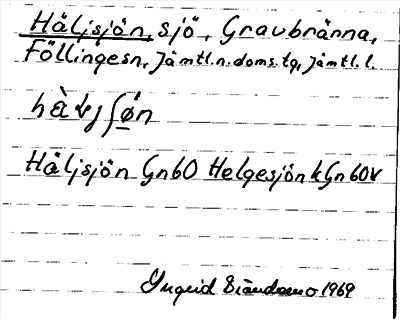 Häljsjön, sjö, Gravbränna,
Föllingesn, Jämtl.n.doms.tg, Jämtl.l.
Häljsjön Gn60 Helgesjön kGn60v
Ingrid 1969